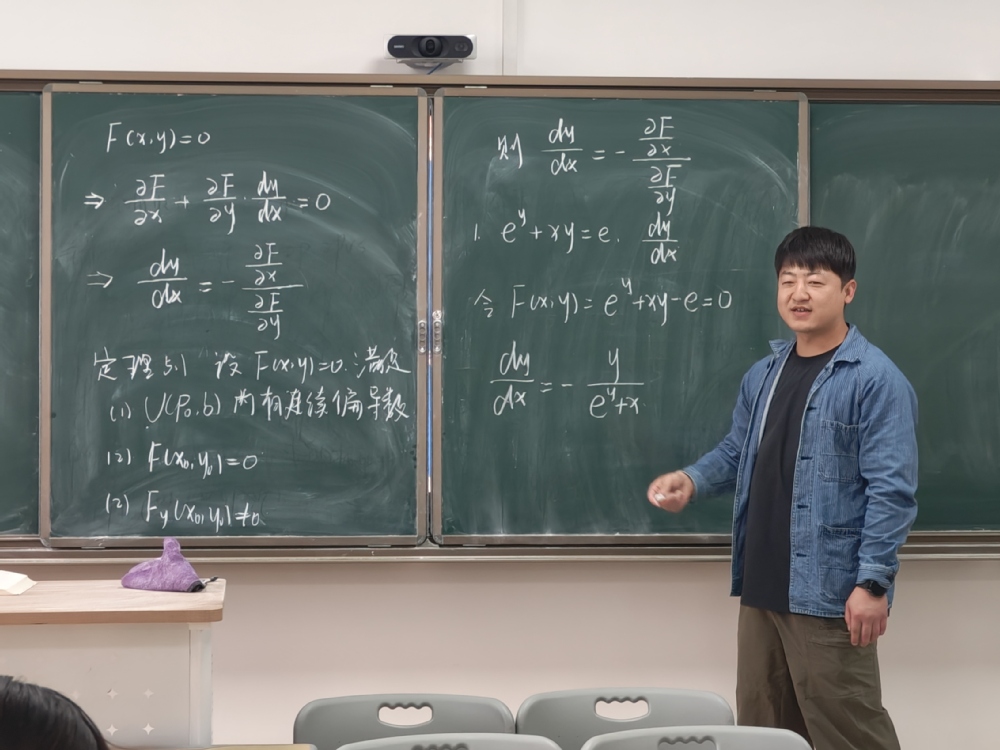 F(x,y)=0
⇒ ∂F/∂x + ∂F/∂y · dy/dx = 0
⇒ dy/dx = - (∂F/∂x)/(∂F/∂y)
定理5.1 设 F(x,y)=0. 满足
(1) U(P₀,δ) 内有连续偏导数
(2) F(x₀,y₀)=0
(2) Fy(x₀,y₀)≠0.
则 dy/dx = - (∂F/∂x)/(∂F/∂y)
1. e^y+xy=e. dy/dx
令 F(x,y)=e^y+xy-e=0
dy/dx = - y/(e^y+x)